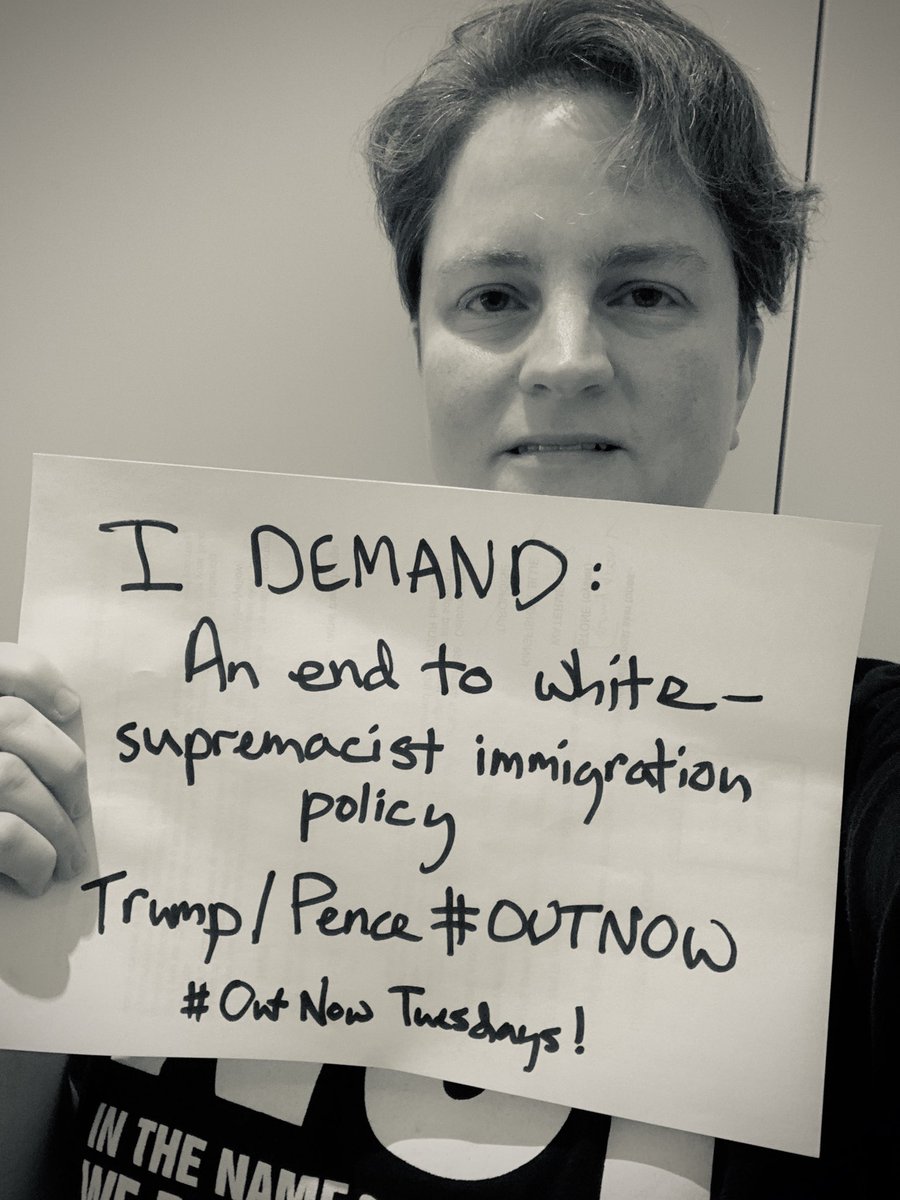 I DEMAND:
An end to white-
supremacist immigration
policy
Trump/Pence #OUTNOW
#OutNow Tuesdays!
IN THE NAME
WE